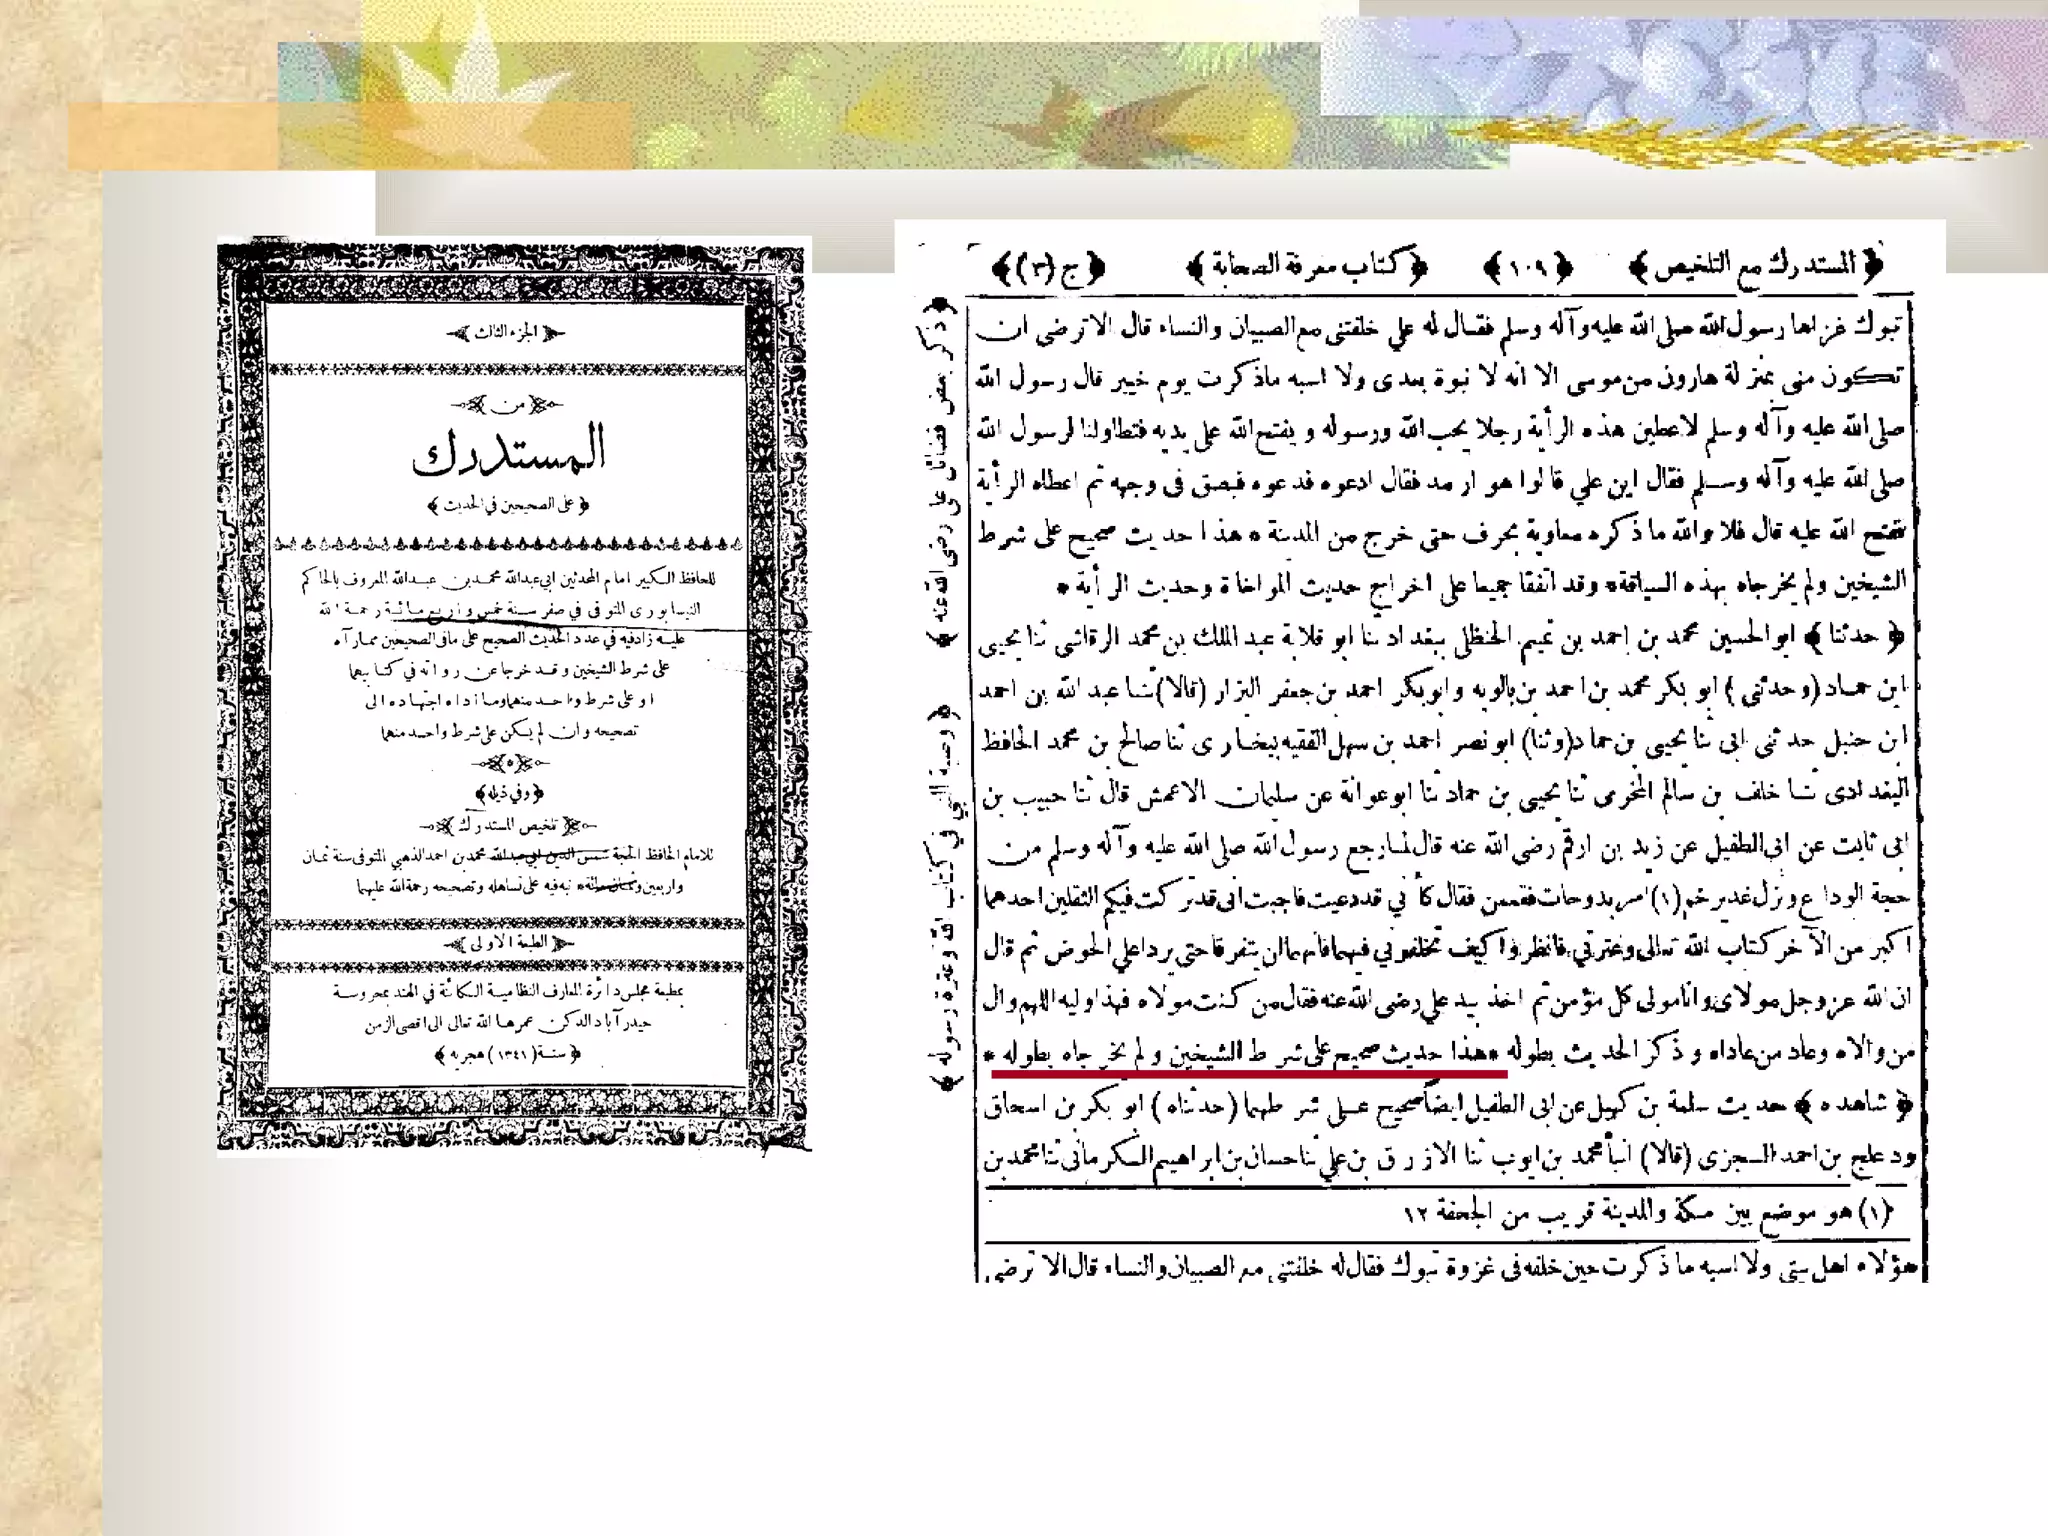 الجزء الثالث
من
المستدرك
على الصحيحين في الحديث
للحافظ الكبير امام المحدثين ابى عبدالله محمد بن عبدالله المعروف بالحاكم
النيسابورى المتوفى فى صفر سنة خمس واربع مائة رحمة الله
عليه زادفيه في عدد الحديث الصحيح على مافى الصحيحين ممارآه
على شرط الشيخين وقد خرجاعن رواته في كتابيهما
اوعلى شرط واحد منهماوما اداه اجتهاده الى
تصحيحه وان لم يكن على شرط واحد منهما
وفي ذيله
تلخيص المستدرك
للامام الحافظ الحجة شمس الدين ابى عبدالله محمدبن احمدالذهبي المتوفى سنة ثمان
واربعين نبه فيه على تساهله وتصحيحه رحمةالله عليهما
الطبعة الاولى
بمطبعة مجلس دائرة المعارف النظامية الكائنة في الهند بمحروسة
حيدرآباد الدكن عمرها الله تعالى الى اقصى الزمن
سنة (١٣٤١) هجريه
المستدرك مع التلخيص (١٠٩) كتاب معرفة الصحابة ج (٣)
تبوك غزاها رسول الله صلى الله عليه وآله وسلم فقال له علي خلفتنى مع الصبيان والنساء قال الا ترضى ان
تكون منى بمنزلة هارون من موسى الا انه لا نبوة بعدى ولا اسبه ماذكرت يوم خيبر قال رسول الله
صلى الله عليه وآله وسلم لاعطين هذه الرأية رجلا يحب الله ورسوله ويفتح الله على يديه فتطاولنا لرسول الله
صلى الله عليه وآله وسلم فقال اين علي قالوا هو ارمد فقال ادعوه فدعوه فبصق فى وجهه ثم اعطاه الرأية
ففتح الله عليه قال فلا والله ما ذكره معاوية بحرف حتى خرج من المدينة * هذا حديث صحيح على شرط
الشيخين ولم يخرجاه بهذه السياقة* وقد اتفقا جميعا على اخراج حديث المواخاة وحديث الرأية *
﴿ حدثنا ﴾ ابوالحسين محمد بن احمد بن تميم الحنظلى ببغداد ثنا ابو قلابة عبد الملك بن محمد الرقاشى ثنا يحيى
ابن حماد (وحدثنى) ابو بكر محمد بن احمد بن بالويه وابوبكر احمد بن جعفر البزار (قالا) ثنا عبد الله بن احمد
ابن حنبل حدثنى ابى ثنا يحيى بن حماد (وثنا) ابو نصر احمد بن سهل الفقيه ببخارى ثنا صالح بن محمد الحافظ
البغدادى ثنا خلف بن سالم المخرمى ثنا يحيى بن حماد ثنا ابوعوانة عن سليمان الاعمش قال ثنا حبيب بن
ابى ثابت عن ابى الطفيل عن زيد بن ارقم رضى الله عنه قال لمارجع رسول الله صلى الله عليه وآله وسلم من
حجة الوداع ونزل غديرخم (١) امر بدوحات فقممن فقال كأني قددعيت فاجبت انى قدتركت فيكم الثقلين احدهما
اكبر من الآخر كتاب الله تعالى وعترتي فانظروا كيف تخلفونى فيهما فانهما لن يتفرقا حتى يردا علي الحوض ثم قال
ان الله عزوجل مولاى وانا مولى كل مؤمن ثم اخذ بيد علي رضى الله عنه فقال من كنت مولاه فهذا وليه اللهم وال
من والاه وعاد من عاداه وذكر الحديث بطوله *هذا حديث صحيح على شرط الشيخين ولم يخرجاه بطوله *
﴿ شاهده ﴾ حديث سلمة بن كهيل عن ابى الطفيل ايضا صحيح على شرطهما (حدثناه) ابو بكر بن اسحاق
ودعلج بن احمد السجزى (قالا) انبأ محمد بن ايوب ثنا الازرق بن علي ثنا حسان بن ابراهيم الكرمانى ثنا محمد بن
(١) هو موضع بين مكة والمدينة قريب من الجحفة ١٢
هؤلاء اهل بيتى ولا اسبه ما ذكرت حين خلفه فى غزوة تبوك فقال له خلفتنى مع الصبيان والنساء قال الا ترضى
﴿ذكر بعض فضائل على رضى الله عنه﴾
﴿وصية النبي في كتاب الله وعترة رسوله﴾